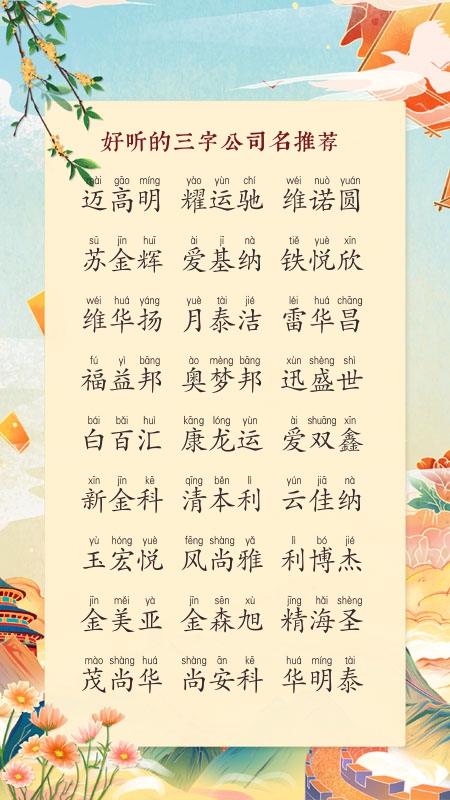 好听的三字公司名推荐
mài gāo míng yào yùn chí wéi nuò yuán
迈高明 耀运驰 维诺圆
sū jīn huī ài jī nà tiě yuè xīn
苏金辉 爱基纳 铁悦欣
wéi huá yáng yuè tài jié léi huá chāng
维华扬 月泰洁 雷华昌
fú yì bāng ào mèng bāng xùn shèng shì
福益邦 奥梦邦 迅盛世
bái bǎi huì kāng lóng yùn ài shuāng xīn
白百汇 康龙运 爱双鑫
xīn jīn kē qīng běn lì yún jiā nà
新金科 清本利 云佳纳
yù hóng yuè fēng shàng yǎ lì bó jié
玉宏悦 风尚雅 利博杰
jīn měi yà jīn sēn xù jīng hǎi shèng
金美亚 金森旭 精海圣
mào shàng huá shàng ān kē huá míng tài
茂尚华 尚安科 华明泰